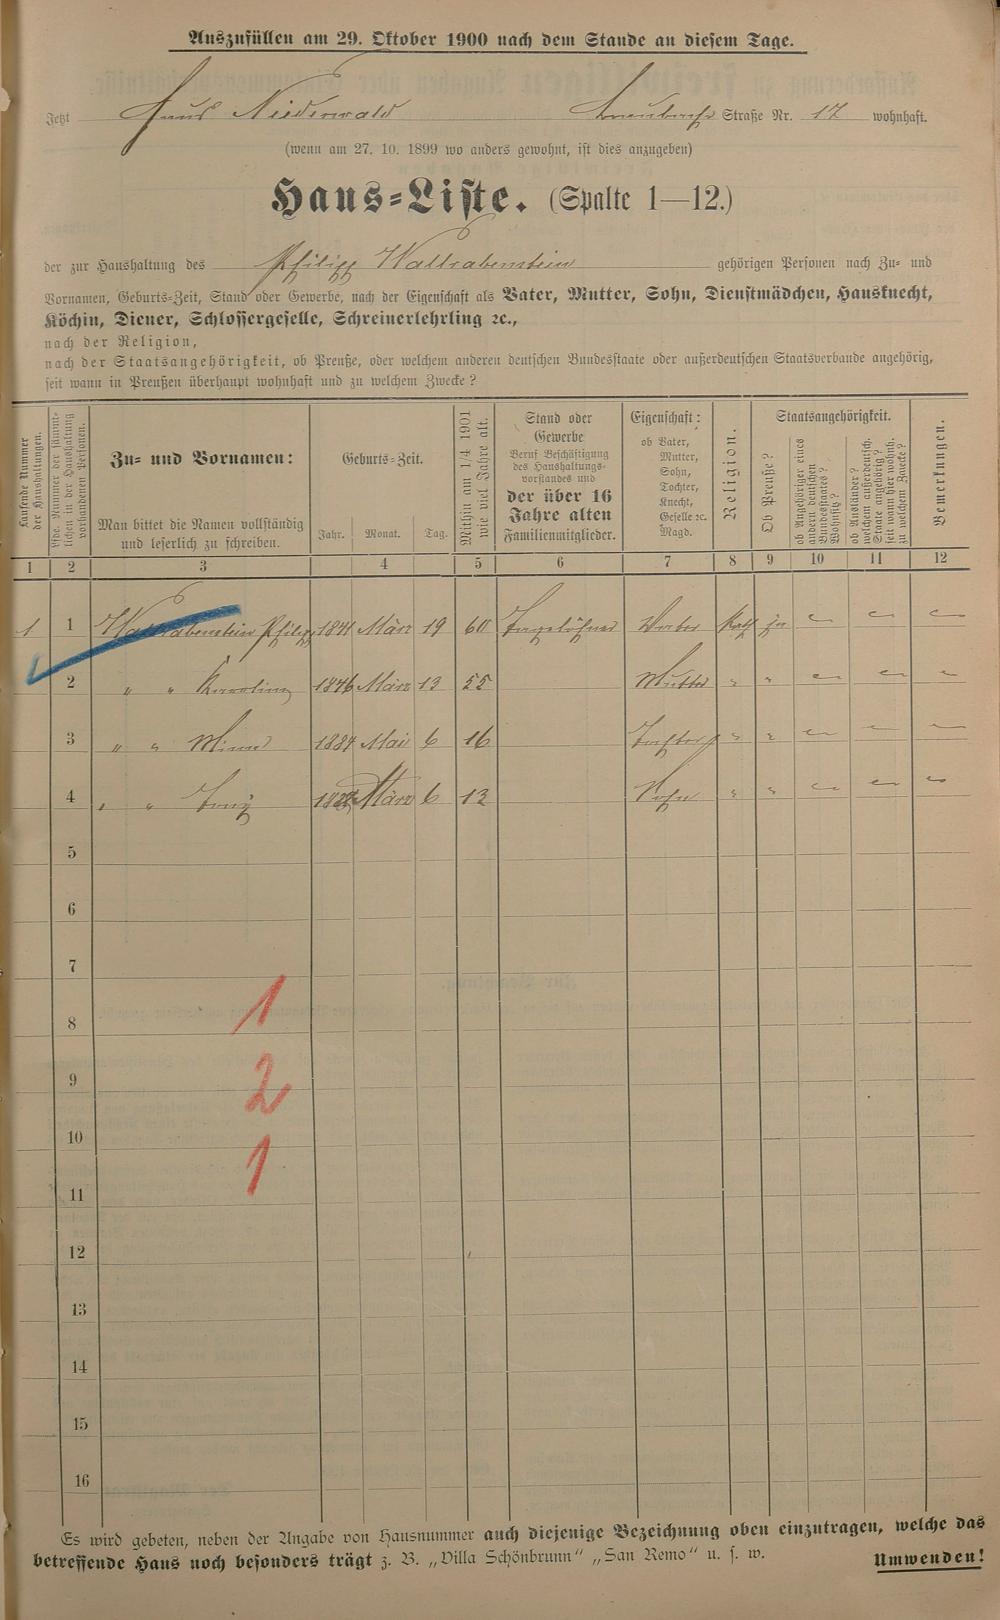 Auszufüllen am 29. Oktober 1900 nach dem Stande an diesem Tage.
Jetzt Haus Niederwald Straße Nr. 17 wohnhaft.
(wenn am 27. 10. 1899 wo anders gewohnt, ist dies anzugeben)
Haus-Liste. (Spalte 1—12.)
der zur Haushaltung des Philipp Wallrabenstein gehörigen Personen nach Zu- und
Vornamen, Geburts-Zeit, Stand oder Gewerbe, nach der Eigenschaft als Vater, Mutter, Sohn, Dienstmädchen, Hausknecht,
Köchin, Diener, Schlossergeselle, Schreinerlehrling ꝛc.,
nach der Religion,
nach der Staatsangehörigkeit, ob Preuße, oder welchem anderen deutschen Bundesstaate oder außerdeutschen Staatsverbande angehörig,
seit wann in Preußen überhaupt wohnhaft und zu welchem Zwecke?
Laufende Nummer
der Haushaltungen.
Lfde. Nummer der sämmt-
lichen in der Haushaltung
vorhandenen Personen.
Zu- und Vornamen:
Man bittet die Namen vollständig
und leserlich zu schreiben.
Geburts-Zeit.
Jahr. Monat. Tag.
Mithin am 1/4 1901
wie viel Jahre alt.
Stand oder
Gewerbe
Beruf Beschäftigung
des Haushaltungs-
vorstandes und
der über 16
Jahre alten
Familienmitglieder.
Eigenschaft:
ob Vater,
Mutter,
Sohn,
Tochter,
Knecht,
Geselle ꝛc.
Magd.
Religion.
Staatsangehörigkeit.
Ob Preuße?
ob Angehöriger eines
andern deutschen
Bundesstaates?
Wohnsitz?
ob Ausländer?
welchem außerdeutsch.
Staate angehörig?
seit wann hier wohnh.
zu welchem Zwecke?
Bemerkungen.
1 2 3 4 5 6 7 8 9 10 11 12
1 1 Wallrabenstein Philipp 1841 März 19 60 Tagelöhner Vater Kath ja — — —
2 " " Karolina 1846 März 13 55 Mutter " " — — —
3 " " Minna 1884 Mai 6 16 Tochter " " — — —
4 " " März 6 13 Sohn " " — — —
5
6
7
8 1
9 2
10
11 1
12
13
14
15
16
Es wird gebeten, neben der Angabe von Hausnummer auch diejenige Bezeichnung oben einzutragen, welche das
betreffende Haus noch besonders trägt z. B. „Villa Schönbrunn“ „San Remo“ u. s. w. Umwenden!